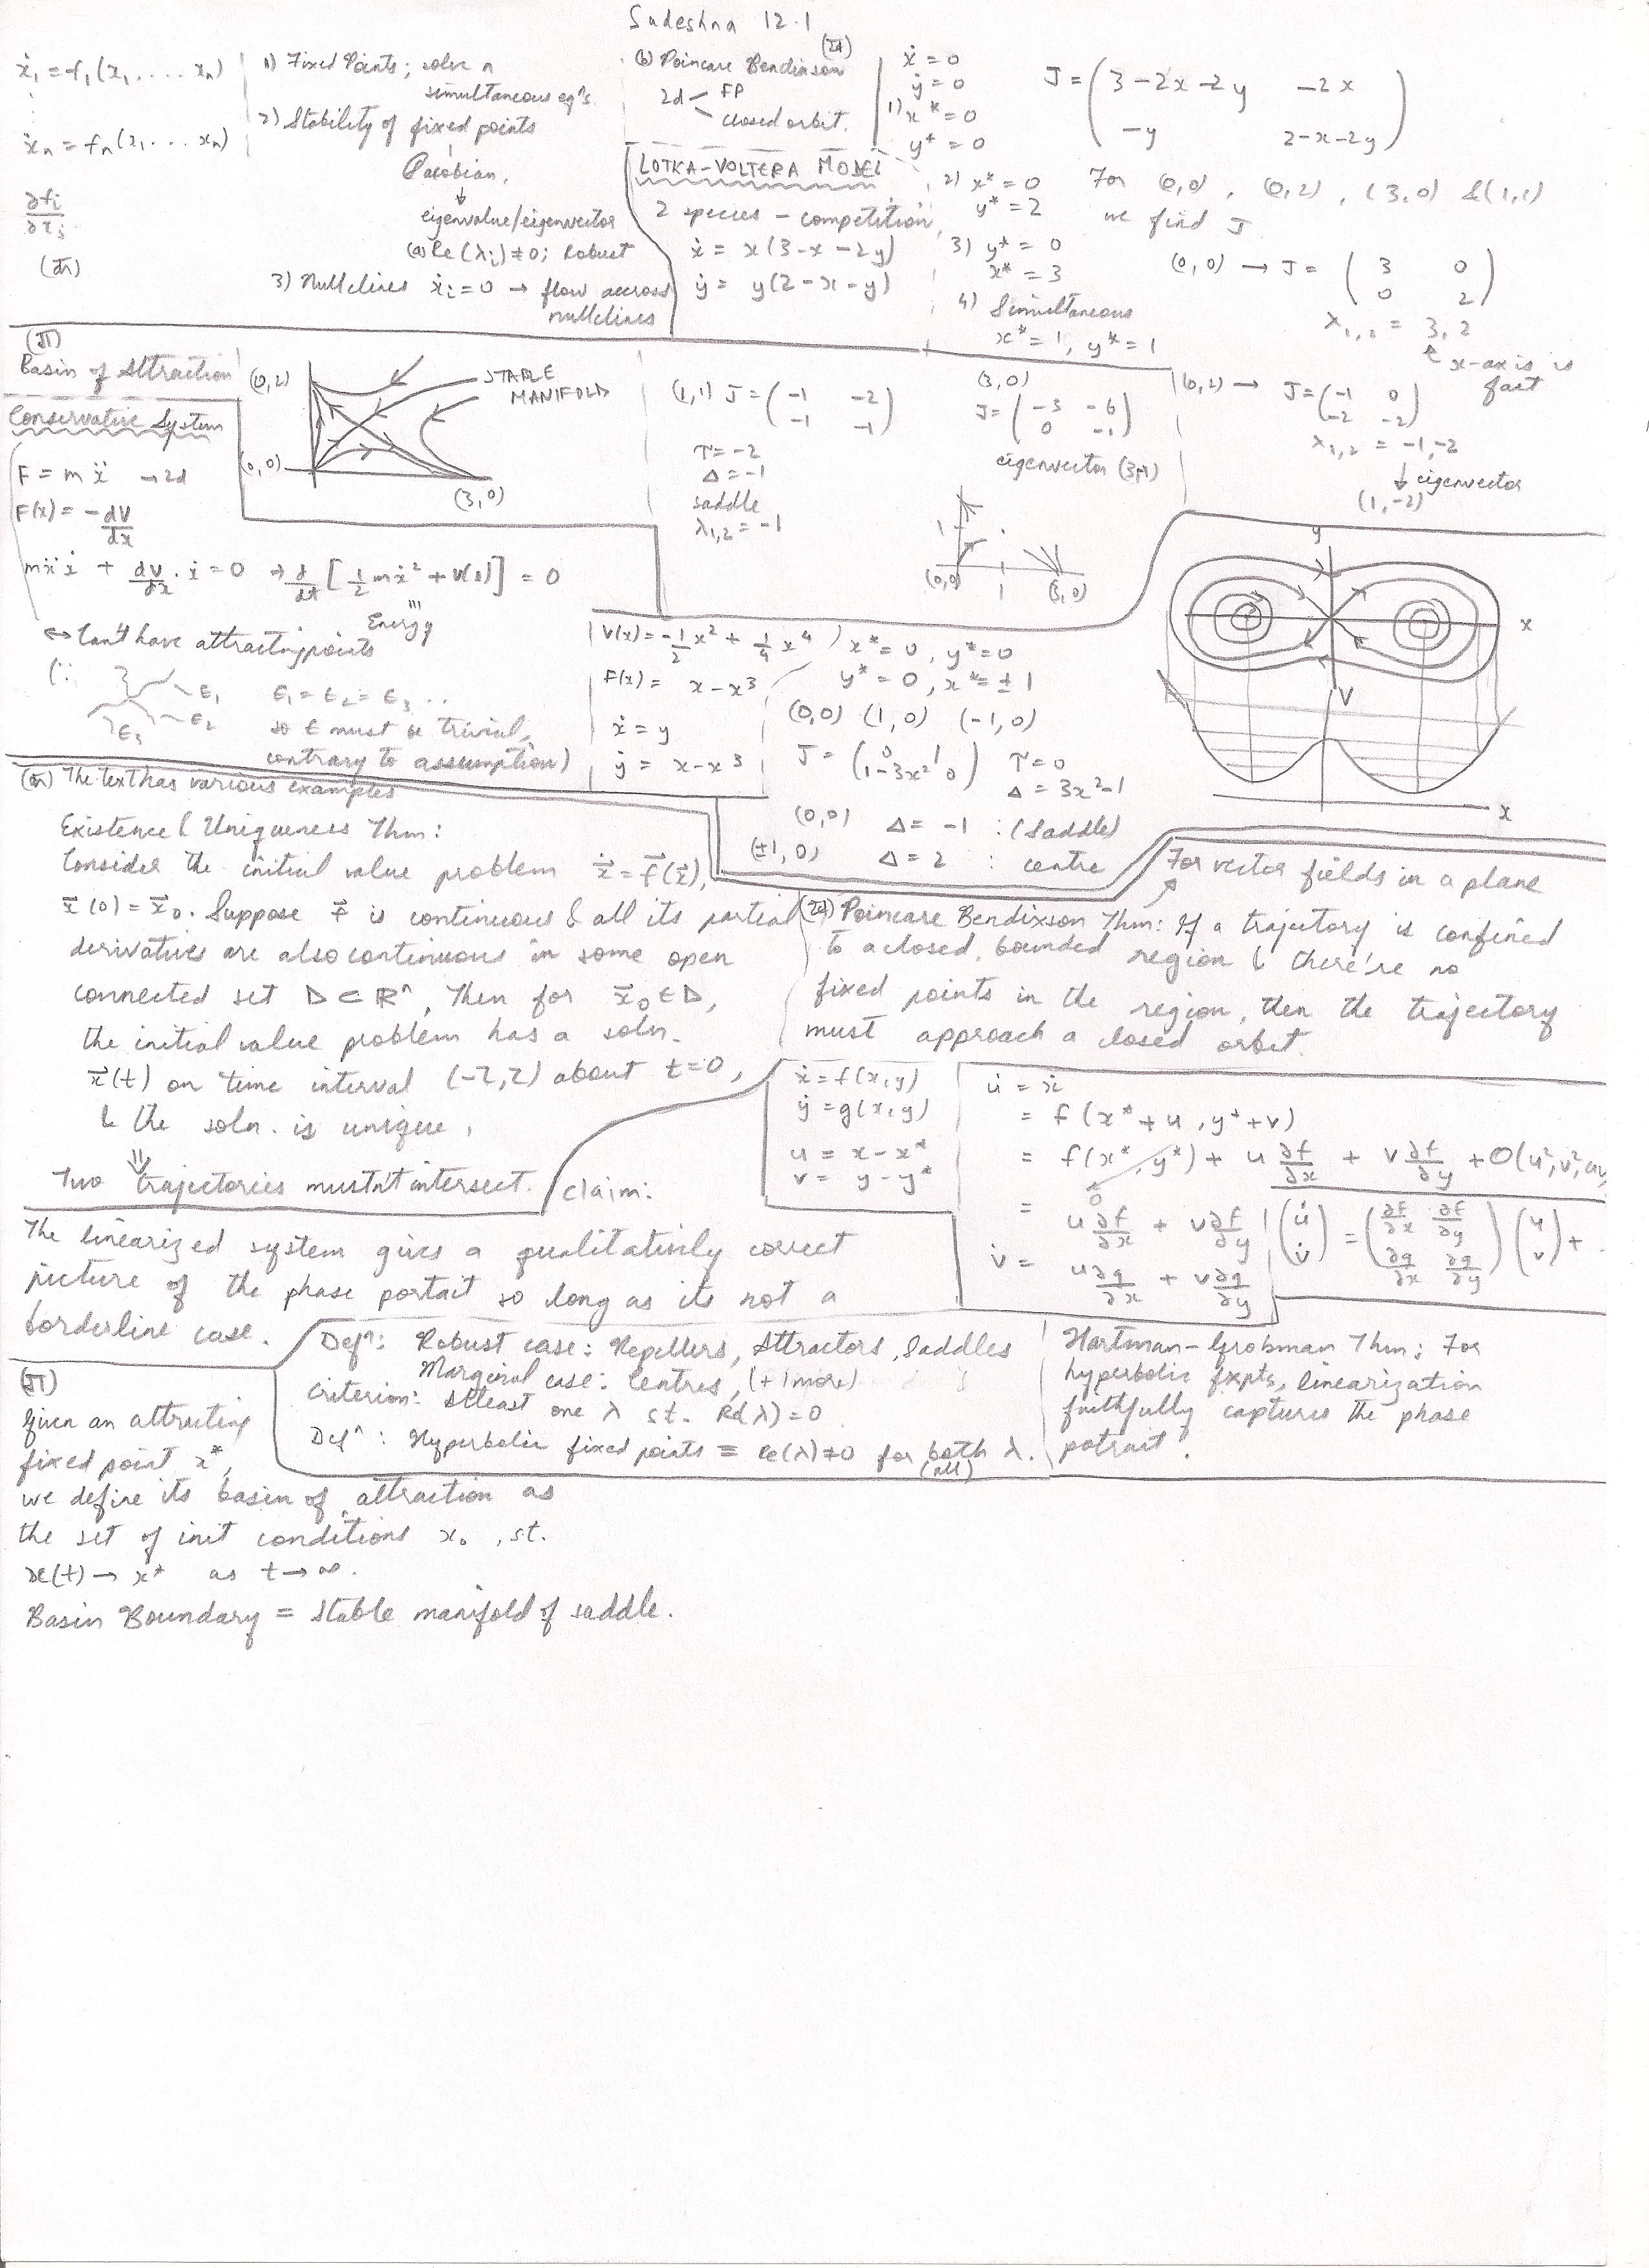 Sudeshna 12.1
ẋ₁ = f₁(x₁, .... xₙ)
⋮
ẋₙ = fₙ(x₁ ... xₙ)
∂fᵢ
∂xⱼ
1) Fixed Points; solve n
simultaneous eqⁿs
2) Stability of fixed points
Jacobian,
↓
eigenvalue/eigenvector
(a) Re(λᵢ) ≠ 0; Robust
3) Nullclines ẋᵢ = 0 → flow accross
nullclines
(b) Poincare Bendixson
2d FP
closed orbit.
LOTKA-VOLTERA MODEL
2 species - competition
ẋ = x(3-x-2y)
ẏ = y(2-x-y)
ẋ = 0
ẏ = 0
1) x* = 0
y* = 0
2) x* = 0
y* = 2
3) y* = 0
x* = 3
4) Simultaneous
x* = 1, y* = 1
J = (3-2x-2y -2x
-y 2-x-2y)
For (0,0), (0,2), (3,0) & (1,1)
we find J
(0,0) → J = (3 0
0 2)
λ₁,₂ = 3, 2
↑ x-axis is
fast
Basin of Attraction
(0,2)
STABLE
MANIFOLD
(0,0)
(3,0)
(1,1) J = (-1 -2
-1 -1)
τ = -2
Δ = -1
saddle
λ₁,₂ = -1
(3,0)
J = (-3 -6
0 -1)
eigenvector (3,-1)
1
(0,0) 1 (3,0)
(0,2) → J = (-1 0
-2 -2)
λ₁,₂ = -1, -2
↓ eigenvector
(1,-2)
Conservative System
F = mẍ → 2d
F(x) = -dV
dx
mẍẋ + dV/dx . ẋ = 0 ⇒ d/dt [½mẋ² + V(x)] = 0
Energy
↔ Can't have attracting points
(∵ E₁ E₂ E₃
E₁ = E₂ = E₃ ..
so E must be trivial,
contrary to assumption)
V(x) = -½x² + ¼x⁴
F(x) = x - x³
ẋ = y
ẏ = x - x³
x* = 0, y* = 0
y* = 0, x* = ±1
(0,0) (1,0) (-1,0)
J = (0 1
1-3x² 0) τ = 0
Δ = 3x²-1
(0,0) Δ = -1 : (Saddle)
(±1,0) Δ = 2 : centre
y
x
V
x
The text has various examples
Existence & Uniqueness Thm:
Consider the initial value problem ẋ = f(x),
x(0) = x₀. Suppose f is continuous & all its partial
derivatives are also continuous in some open
connected set D ⊂ ℝⁿ, Then for x₀ ∈ D,
the initial value problem has a soln.
x(t) on time interval (-τ,τ) about t=0,
& the soln. is unique,
⇓
Two trajectories mustn't intersect.
For vector fields in a plane
Poincare Bendixson Thm: If a trajectory is confined
to a closed, bounded region & there're no
fixed points in the region, then the trajectory
must approach a closed orbit.
Claim:
The linearized system gives a qualitatively correct
picture of the phase portait so long as its not a
borderline case.
ẋ = f(x,y)
ẏ = g(x,y)
u = x - x*
v = y - y*
u̇ = ẋ
= f(x* + u, y* + v)
= f(x*, y*) + u ∂f/∂x + v ∂f/∂y + O(u², v², uv
0
= u ∂f/∂x + v ∂f/∂y
v̇ = u ∂g/∂x + v ∂g/∂y
(u̇ v̇) = (∂f/∂x ∂f/∂y
∂g/∂x ∂g/∂y) (u v) + .
Defⁿ: Robust case: Repellers, Attractors, Saddles
Marginal case: Centres, (+1 more)
Criterion: Atleast one λ st. Re(λ) = 0
Defⁿ: Hyperbolic fixed points ≡ Re(λ) ≠ 0 for both λ.
(all)
Hartman-Grobman Thm: For
hyperbolic fxpts, linearization
faithfully captures the phase
potrait.
Given an attracting
fixed point x*,
we define its basin of attraction as
the set of init conditions x₀, st.
x(t) → x* as t → ∞.
Basin Boundary = Stable manifold of saddle.